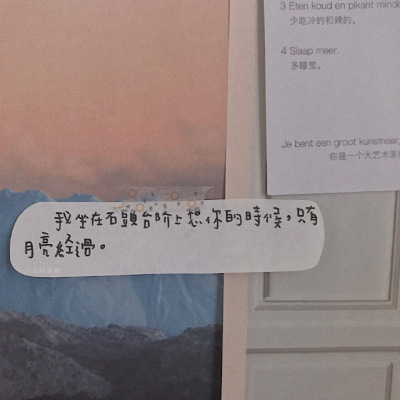 3 Eten koud en pikant minde
少吃冷的和辣的。
4 Slaap meer.
多睡觉。
Je bent een groot kunstnaar,
你是一个大艺术家
我坐在石頭台阶上想你的時候，只有
月亮経過。